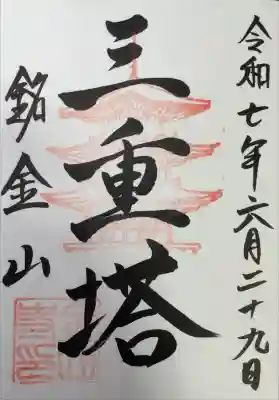 令和七年六月二十九日
三重塔
銘金山